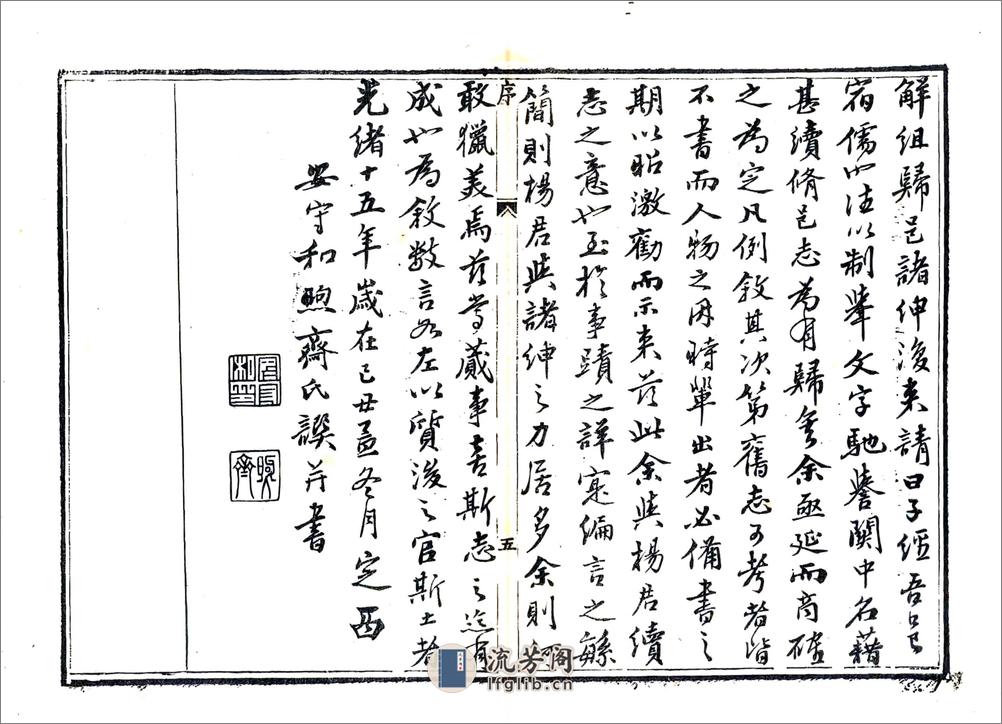 解組歸邑諸紳復来請曰子經吾邑
宿儒也法以制舉文字馳譽關中名藉
甚續脩邑志為有歸矣余亟延而商確
之為定凡例敘其次第舊志可考者皆
不書而人物之因時輩出者必備書之
期以昭激勸而示来茲此余與楊君續
志之意也至於事蹟之詳寔編言之繇
簡則楊君與諸紳之力居多余則
序
五
敢獵美焉茲當蕆事喜斯志之迄有
成也為敘数言如左以質後之官斯土者
光緒十五年歲在己丑孟冬月定西
安守和煦齋氏譔并書
煦齊
流芳阁
lfglib.cn